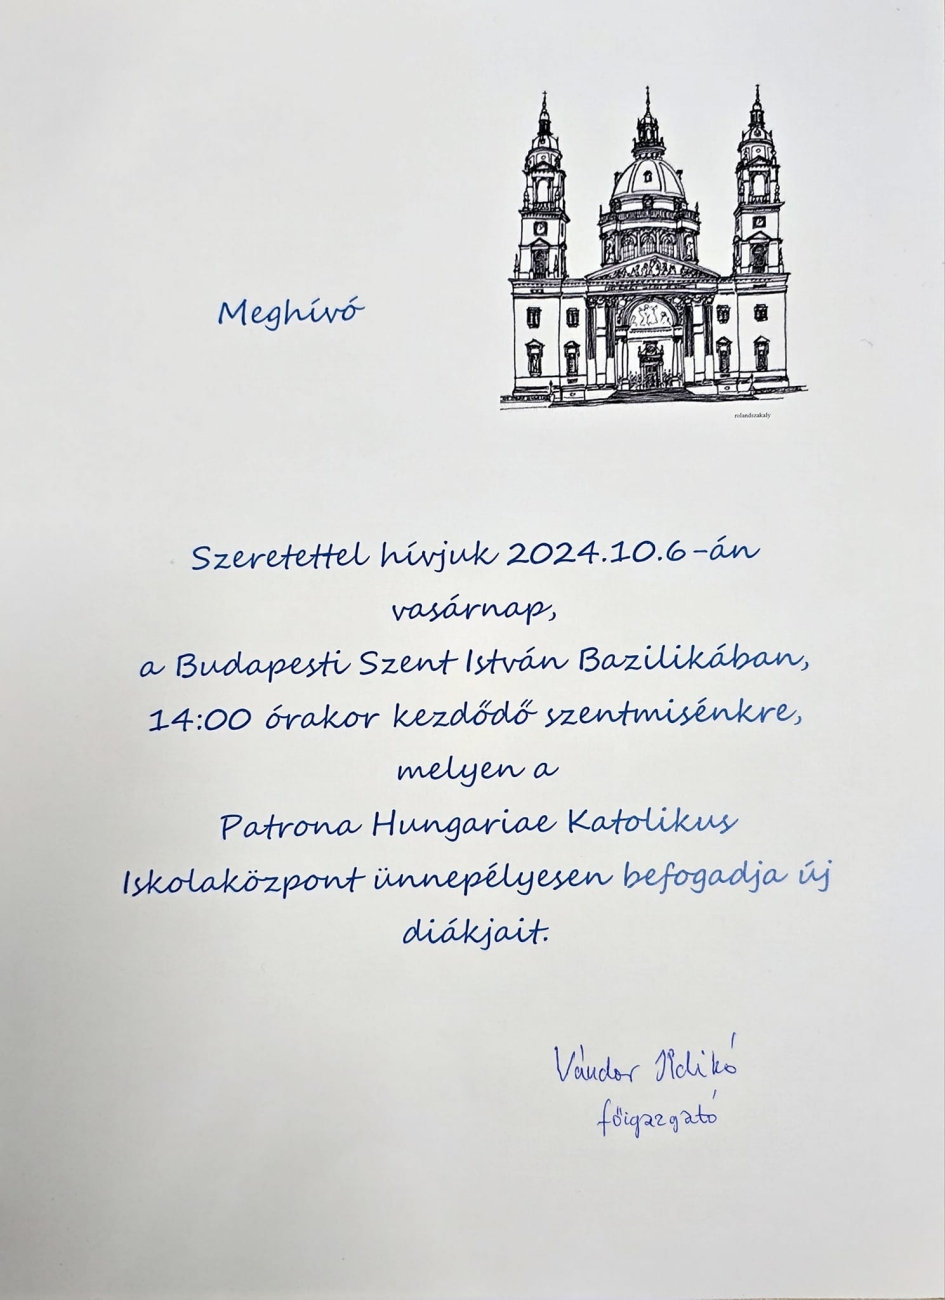 Meghívó
rolandszakaly
Szeretettel hívjuk 2024.10.6-án
vasárnap,
a Budapesti Szent István Bazilikában,
14:00 órakor kezdődő szentmisénkre,
melyen a
Patrona Hungariae Katolikus
Iskolaközpont ünnepélyesen befogadja új
diákjait.
Vándor Ildikó
főigazgató